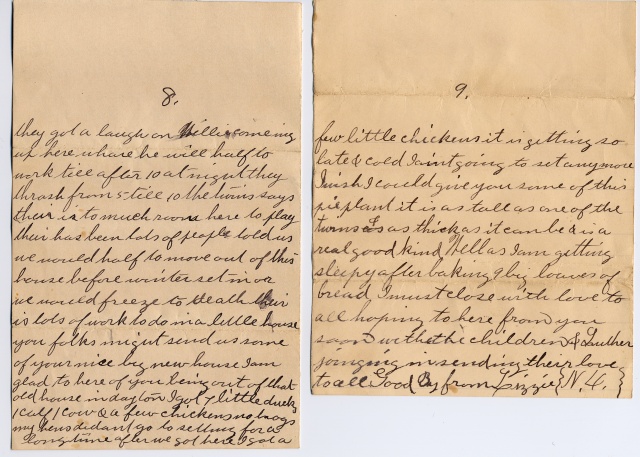 8.
they got a laugh on Willis coming
up here where he will half to
work till after 10 at night they
thrash from 5 till 10 the twins says
their is to much room here to play
their has been lots of people told us
we would half to move out of this
house before winter set in or
we would freeze to death their
is lots of work to do in a little house
you folks might send us some
of your nice big new house I am
glad to here of you being out of that
old house in dayton I got 7 little ducks
1 calf 1 cow & a few chickens no hogs
my hens didant go to setting for a
long time after we got here I got a
9.
few little chickens it is getting so
late & cold I aint going to set any more
I wish I could give you some of this
pieplant it is as tall as one of the
twins & as thick as it can be & is a
real good kind Well as I am getting
sleepy after baking 9 big loaves of
bread I must close with love to
all hoping to here from you
soon with the children & Luther
joinging in sending their love
to all Good By from Lizzie